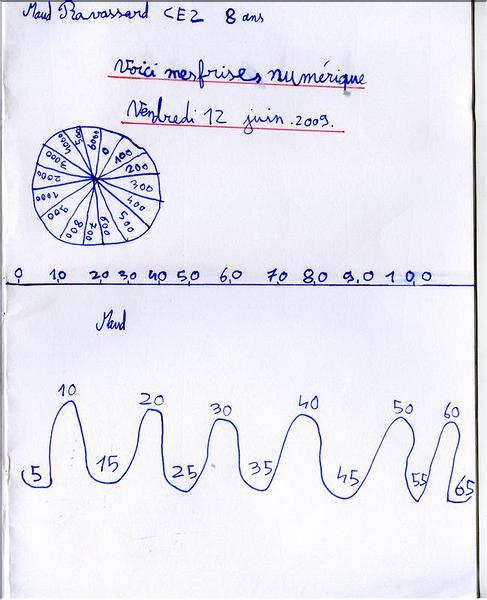 Maud Ravassard CE2 8 ans
Voici mes frises numérique
Vendredi 12 juin. 2009.
0 100 200 300 400 500 600 700 800 900 1000 2000 3000 4000
0 10 20 30 40 50 60 70 80 90 100
Maud
10 20 30 40 50 60
5 15 25 35 45 55 65